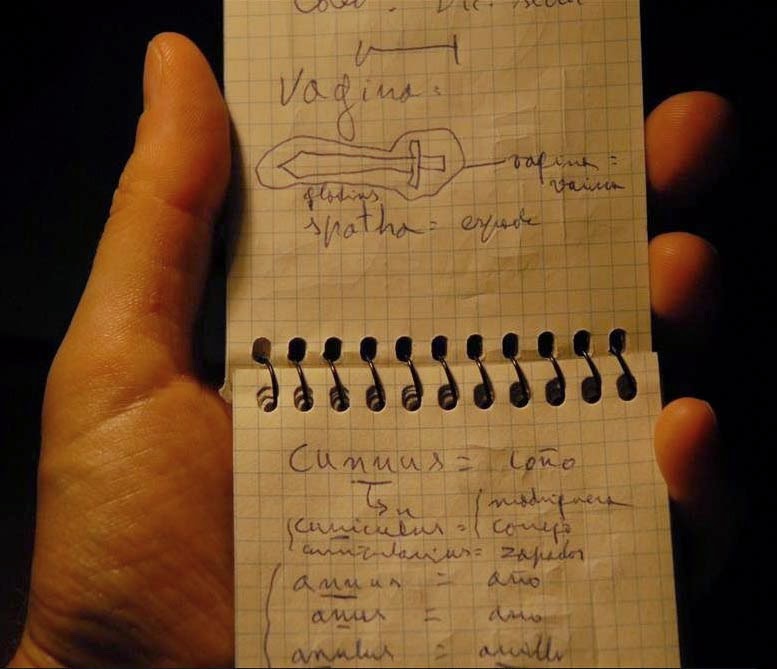 Vagina =
vagina =
vaina
gladius
spatha = espada
Cunnus = coño
ñ
madriguera
cuniculus = conejo
cunicularius = zapador
annus = año
anus = ano
anulus = anillo